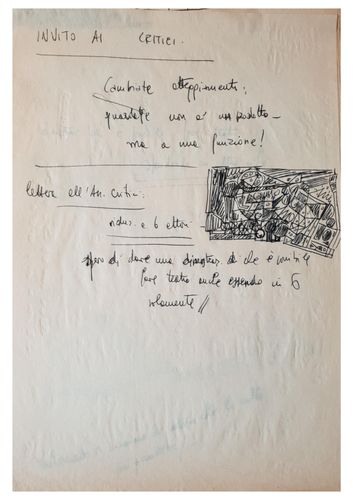 INVITO AI CRITICI.
Cambiate atteggiamenti;
guardate non a un prodotto
ma a una funzione!
lettera all'Ass. Critici:
riduz. a 6 attori
spero di dare una dimostraz. di che è possibile
fare teatro anche essendo in 6
solamente //